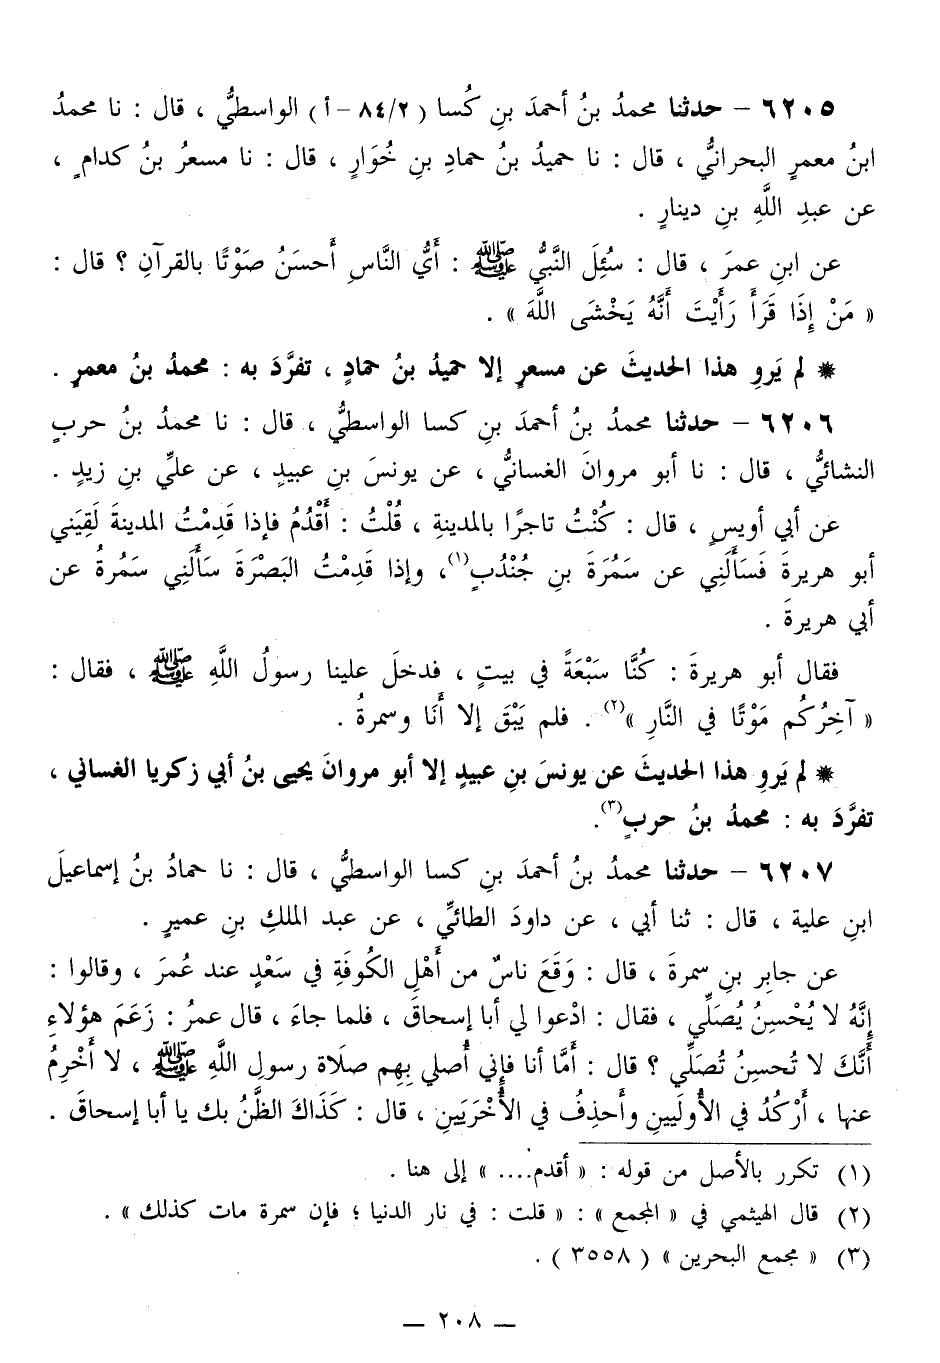 ٦٢٠٥ – حدثنا محمدُ بنُ أحمدَ بنِ كُسا ( ٨٤/٢ – أ ) الواسطيُّ ، قال : نا محمدُ
ابنُ معمرٍ البحرانيُّ ، قال : نا حميدُ بنُ حمادِ بنِ خُوَارٍ ، قال : نا مسعرُ بنُ كدامٍ ،
عن عبدِ اللَّهِ بنِ دينارٍ .
عن ابنِ عمرَ ، قال : سُئِلَ النَّبيُّ ﷺ : أَيُّ النَّاسِ أَحسَنُ صَوْتًا بالقرآنِ ؟ قال :
« مَنْ إِذَا قَرَأَ رَأَيْتَ أَنَّهُ يَخْشَى اللَّهَ » .
* لم يَروِ هذا الحديثَ عن مسعرٍ إلا حميدُ بنُ حمادٍ ، تفرَّدَ به : محمدُ بنُ معمرٍ .
٦٢٠٦ – حدثنا محمدُ بنُ أحمدَ بنِ كسا الواسطيُّ ، قال : نا محمدُ بنُ حربٍ
النشائيُّ ، قال : نا أبو مروانَ الغسانيُّ ، عن يونسَ بنِ عبيدٍ ، عن عليِّ بنِ زيدٍ .
عن أبي أويسٍ ، قال : كُنْتُ تاجرًا بالمدينةِ ، قُلْتُ : أَقْدُمُ فإذا قَدِمْتُ المدينةَ لَقِيَني
أبو هريرةَ فَسَأَلَنِي عن سَمُرَةَ بنِ جُنْدُبٍ(١)، وإذا قَدِمْتُ البَصْرَةَ سَأَلَنِي سَمُرةُ عن
أبي هريرةَ .
فقال أبو هريرةَ : كُنَّا سَبْعَةً في بيتٍ ، فدخلَ علينا رسولُ اللَّهِ ﷺ ، فقال :
« آخِرُكُم مَوْتًا في النَّارِ »(٢) . فلم يَبْقَ إلا أَنَا وسمرةُ .
* لم يَروِ هذا الحديثَ عن يونسَ بنِ عبيدٍ إلا أبو مروانَ يحيى بنُ أبي زكريا الغساني ،
تفرَّدَ به : محمدُ بنُ حربٍ(٣).
٦٢٠٧ – حدثنا محمدُ بنُ أحمدَ بنِ كسا الواسطيُّ ، قال : نا حمادُ بنُ إسماعيلَ
ابنِ علية ، قال : ثنا أبي ، عن داودَ الطائيِّ ، عن عبد الملكِ بنِ عميرٍ .
عن جابرِ بنِ سمرةَ ، قال : وَقَعَ ناسٌ من أَهْلِ الكُوفَةِ في سَعْدٍ عند عُمرَ ، وقالوا :
إِنَّهُ لا يُحْسِنُ يُصَلِّي ، فقال : ادْعوا لي أبا إسحاقَ ، فلما جاءَ ، قال عمرُ : زَعَمَ هؤلاءِ
أَنَّكَ لا تُحسِنُ تُصَلِّي ؟ قال : أَمَّا أنا فإِني أُصلي بِهِم صلَاة رسولِ اللَّهِ ﷺ ، لا أَخْرِمُ
عنها ، أَرْكُدُ في الأُولَيينِ وأَحذِفُ في الأُخْرَيَينِ ، قال : كَذَاكَ الظَّنُ بك يا أبا إسحاقَ .
(١) تكرر بالأصل من قوله : « أقدم.... » إلى هنا .
(٢) قال الهيثمي في « المجمع » : « قلت : في نار الدنيا ؛ فإن سمرة مات كذلك » .
(٣) « مجمع البحرين » ( ٣٥٥٨ ) .
— ٢٠٨ —